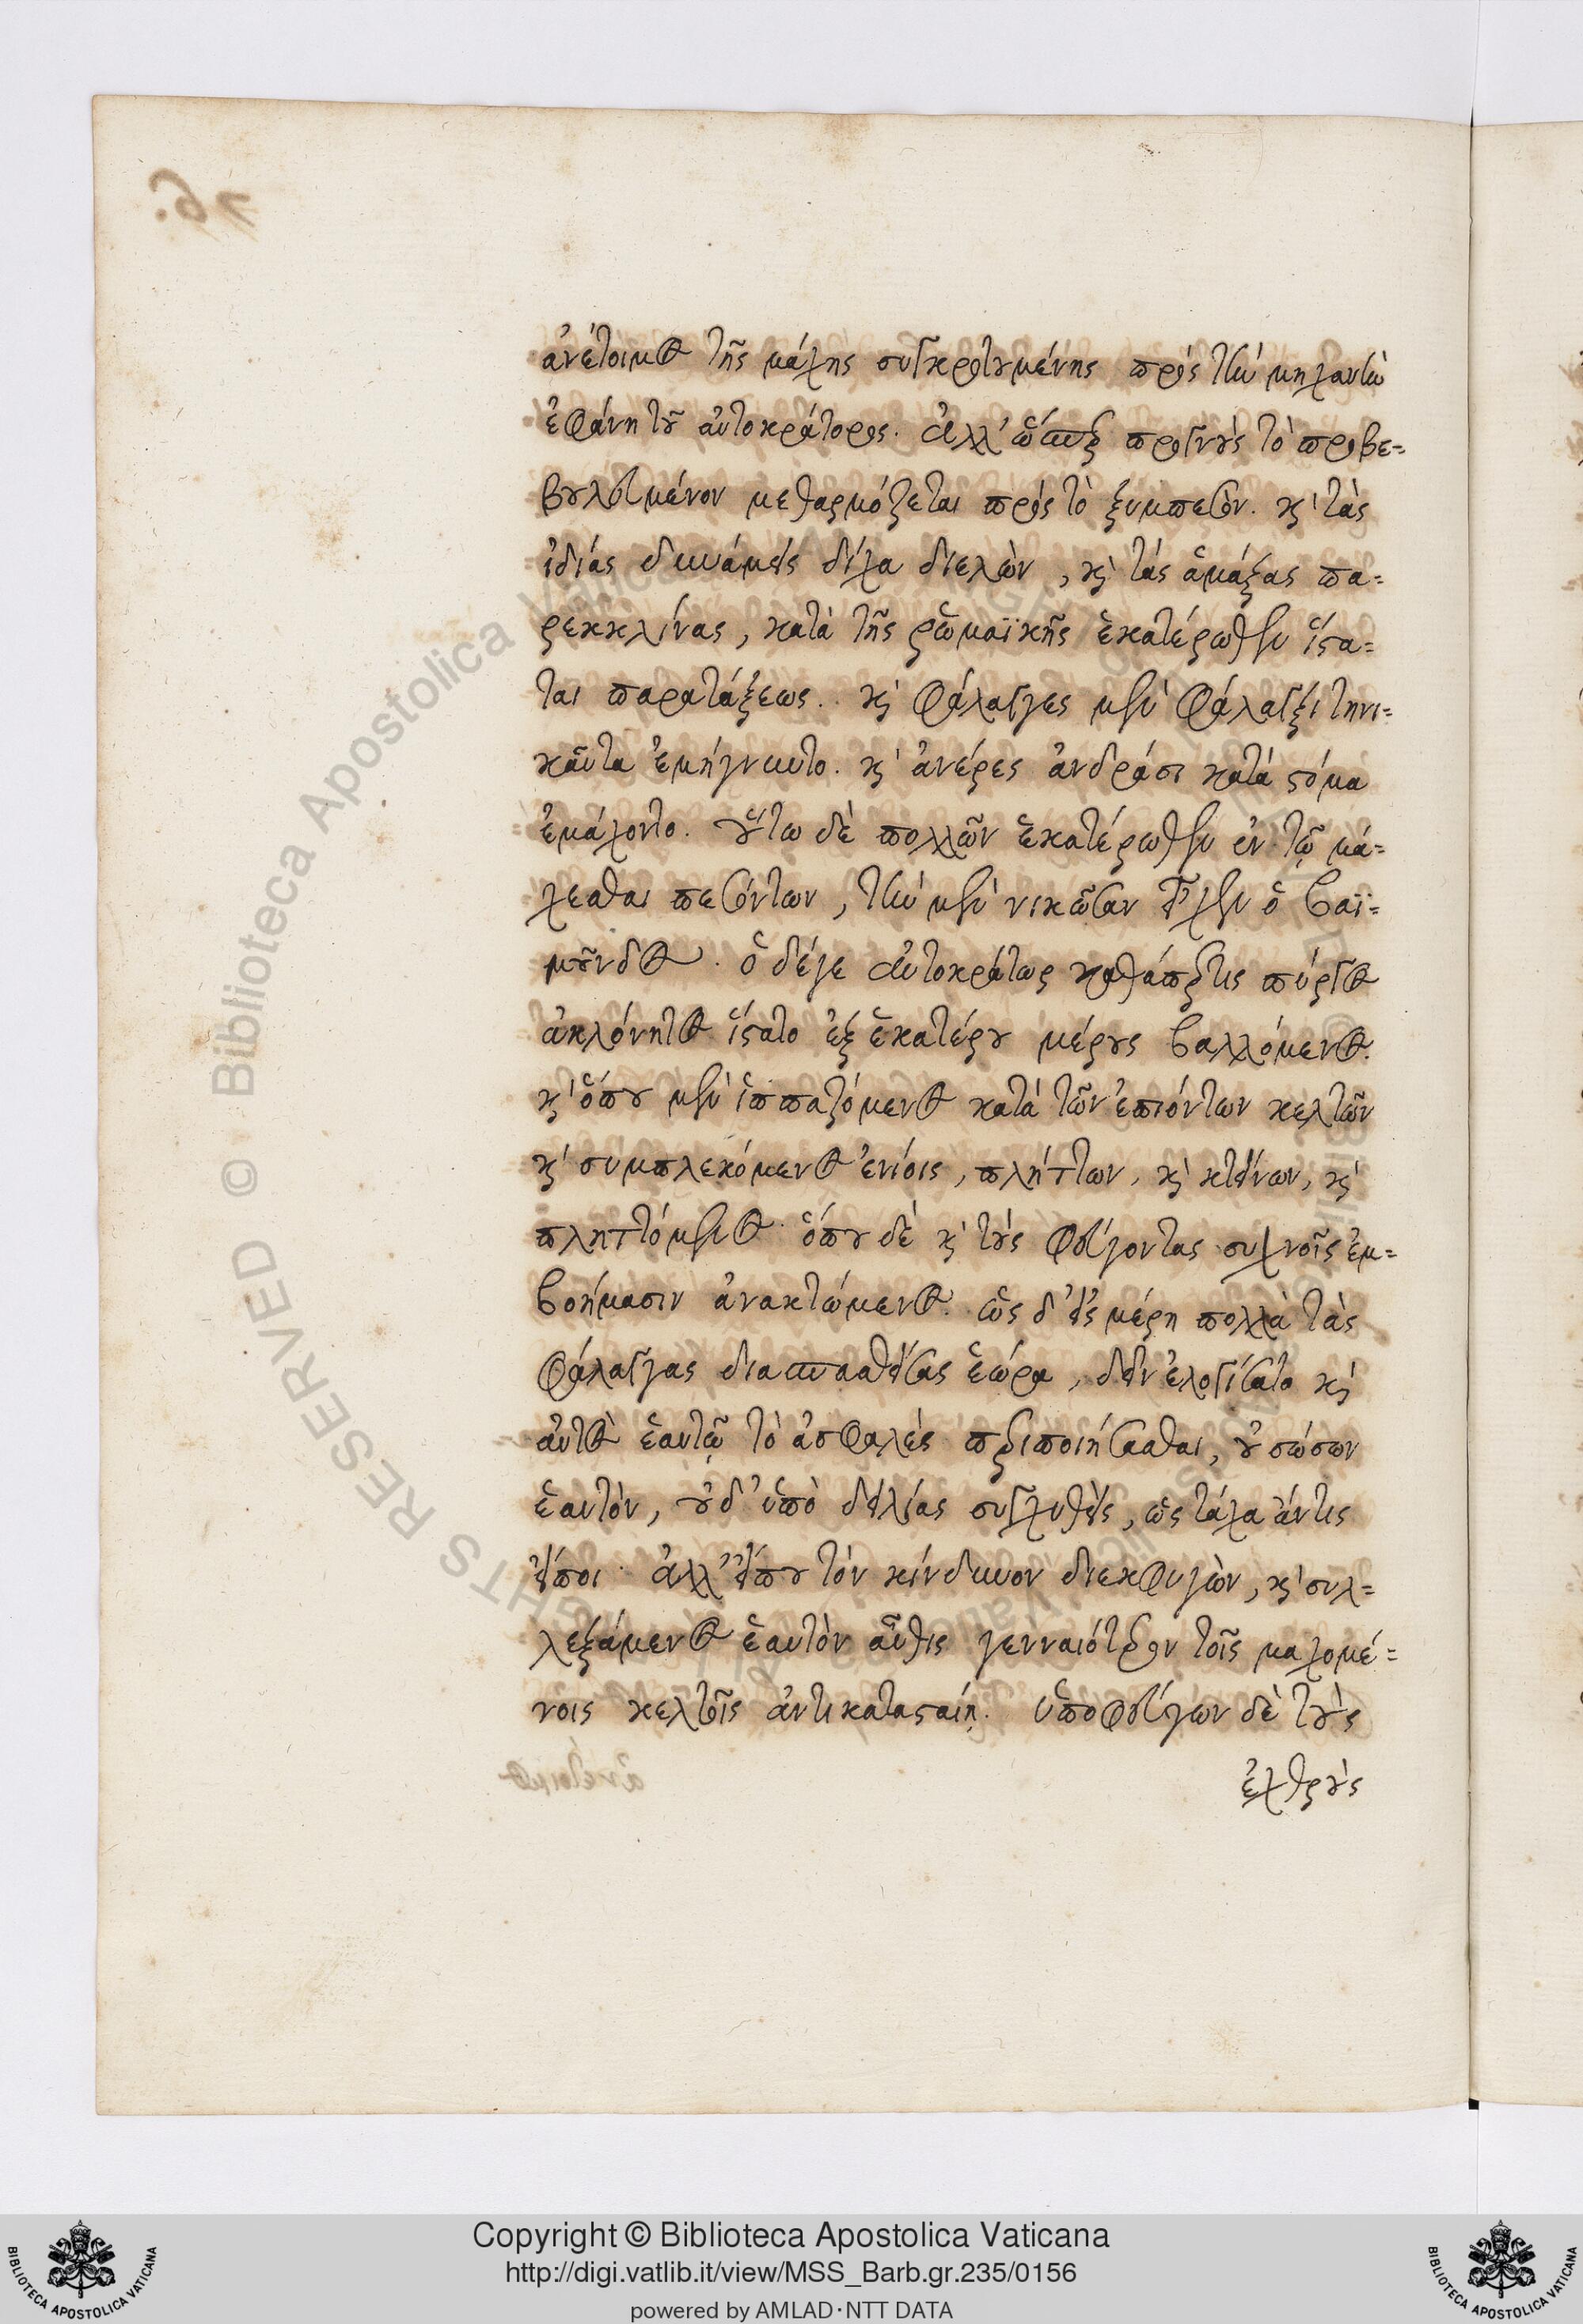 ἀνέτοιμος τῆς μάχης συγκροτουμένης πρὸς τὴν μηχανὴν
ἐφάνη τοῦ αὐτοκράτορος. ἀλλ' ὥσπερ προγνοὺς τὸ προβε=
βουλευμένον μεθαρμόζεται πρὸς τὸ ξυμπεσὸν. καὶ τὰς
ἰδίας δυνάμεις δίχα διελὼν, καὶ τὰς ἁμάξας πα=
ρεκκλίνας, κατὰ τῆς ῥωμαϊκῆς ἑκατέρωθεν ἵστα=
ται παρατάξεως. καὶ φάλαγγες μὲν φάλαγξι τηνι=
καῦτα ἐμήγνυντο. καὶ ἀνέρες ἀνδράσι κατὰ στόμα
ἐμάχοντο. οὕτω δὲ πολλῶν ἑκατέρωθεν ἐν τῷ μά=
χεσθαι πεσόντων, τὴν μὲν νικῶσαν εἶχεν ὁ βαϊ=
μοῦνδος. ὁ δέγε αὐτοκράτωρ καθάπερτις πύργος
ἀκλόνητος ἵστατο ἐξ ἑκατέρου μέρους βαλλόμενος.
καὶ ὅπου μὲν ἱππαζόμενος κατὰ τῶν ἐπιόντων κελτῶν
καὶ συμπλεκόμενος ἐνίοις, πλήττων, καὶ κτείνων, καὶ
πληττόμενος. ὅπου δὲ καὶ τοὺς φεύγοντας συχνοῖς ἐμ=
βοήμασιν ἀνακτώμενος. ὡς δ' εἰς μέρη πολλὰ τὰς
φάλαγγας διασπασθείσας ἑώρα, δεῖν ἐλογίσατο καὶ
αὐτὸς ἑαυτῷ τὸ ἀσφαλὲς περιποιήσασθαι, οὐ σώσων
ἑαυτὸν, οὐδ' ὑπὸ δειλίας συγχυθεὶς, ὡς τάχα ἄντις
εἴποι. ἀλλ' εἴπου τὸν κίνδυνον διεκφυγὼν, καὶ συλ=
λεξάμενος ἑαυτὸν αὖθις γενναιότερον τοῖς μαχομέ=
νοις κελτοῖς ἀντικατασταίη. ὑποφεύγων δὲ τοὺς
ἐχθροὺς
Copyright © Biblioteca Apostolica Vaticana
http://digi.vatlib.it/view/MSS_Barb.gr.235/0156
powered by AMLAD·NTT DATA